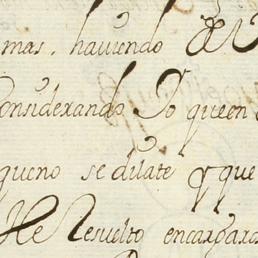 mas, haviendo
Considerando Yo queen
queno se dilate y que
He Resuelto encargaros